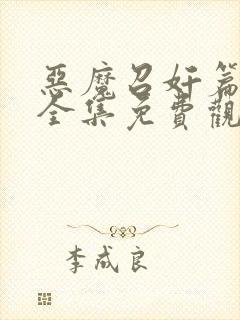 惡魔召奸篇
全集免費觀
李成良